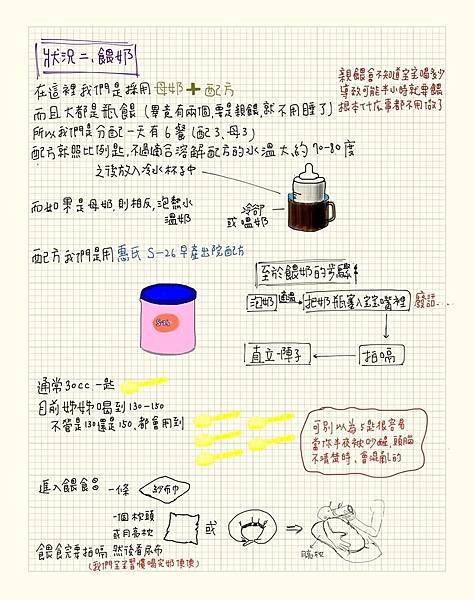 狀況二、餵奶
在這裡我們是採用母奶+配方
而且大都是瓶餵(畢竟有兩個,要是親餵,就不用睡了)
所以我們是分配一天有6餐(配3、母3)
配方就照比例匙,不過適合溶解配方的水溫大約70-80度
之後放入冷水杯子中
親餵會不知道宝宝喝多少
導致可能半小時就要餵
根本什広事都不用做了
而如果是母奶,則相反,泡熱水
溫奶
冷卻
或溫奶
配方我們是用惠氏S-26早產出院配方
S-26
至於餵奶的步驟
泡奶
適溫
把奶瓶塞入宝宝嘴裡
廢話....
拍嗝
直立一陣子
通常30cc一匙
目前姊姊喝到130-150
不管是130還是150,都會用到
可別以為5匙很容易
當你半夜被吵醒,頭腦
不清楚時,會混亂的
進入餵食
一條
紗布巾
一個枕頭
或月亮枕
或
月亮枕
餵食完要拍嗝,然後看尿布
(我們宝宝習慣喝完奶便便)